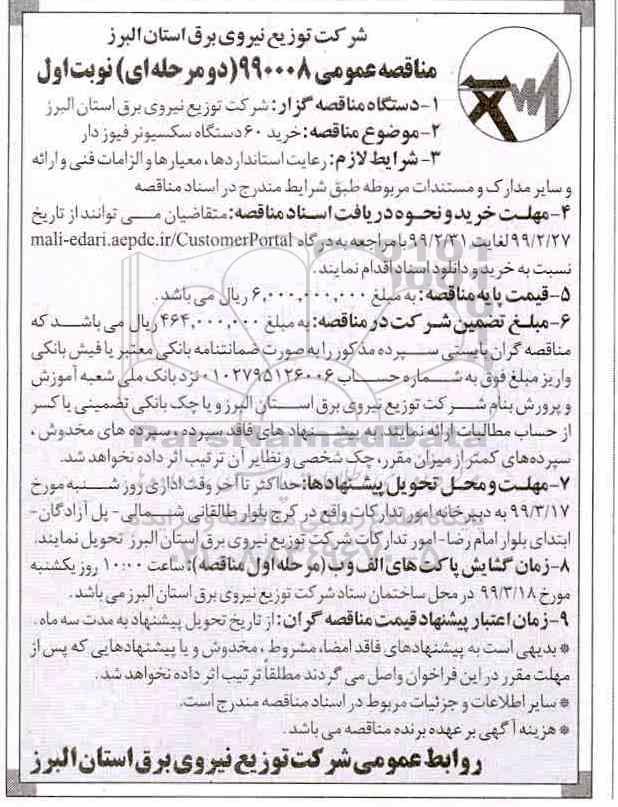 شرکت توزیع نیروی برق استان البرز
مناقصه عمومی ۹۹۰۰۰۸ (دو مرحله ای) نوبت اول
۱- دستگاه مناقصه گزار: شرکت توزیع نیروی برق استان البرز
۲- موضوع مناقصه: خرید ۶۰ دستگاه سکسیونر فیوز دار
۳- شرایط لازم: رعایت استانداردها، معیارها و الزامات فنی و ارائه
و سایر مدارک و مستندات مربوطه طبق شرایط مندرج در اسناد مناقصه
۴- مهلت خرید و نحوه دریافت اسناد مناقصه: متقاضیان می توانند از تاریخ
۹۹/۲/۲۷ لغایت ۹۹/۲/۳۱ با مراجعه به درگاه mali-edari.aepdc.ir/CustomerPortal
نسبت به خرید و دانلود اسناد اقدام نمایند.
۵- قیمت پایه مناقصه: به مبلغ ۶,۰۰۰,۰۰۰,۰۰۰ ریال می باشد.
۶- مبلغ تضمین شرکت در مناقصه: به مبلغ ۴۶۴,۰۰۰,۰۰۰ ریال می باشد که
مناقصه گران بایستی سپرده مذکور را به صورت ضمانتنامه بانکی معتبر یا فیش بانکی
واریز مبلغ فوق به شماره حساب ۰۱۰۲۷۹۵۱۲۶۰۰۶ نزد بانک ملی شعبه آموزش
و پرورش بنام شرکت توزیع نیروی برق استان البرز و یا چک بانکی تضمینی یا کسر
از حساب مطالبات ارائه نمایند. به پیشنهادهای فاقد سپرده، سپرده های مخدوش،
سپرده های کمتر از میزان مقرر، چک شخصی و نظایر آن ترتیب اثر داده نخواهد شد.
۷- مهلت و محل تحویل پیشنهادها: حداکثر تا آخر وقت اداری روز شنبه مورخ
۹۹/۳/۱۷ به دبیرخانه امور تدارکات واقع در کرج بلوار طالقانی شمالی - پل آزادگان -
ابتدای بلوار امام رضا - امور تدارکات شرکت توزیع نیروی برق استان البرز تحویل نمایند.
۸- زمان گشایش پاکت های الف و ب (مرحله اول مناقصه): ساعت ۱۰:۰۰ روز یکشنبه
مورخ ۹۹/۳/۱۸ در محل ساختمان ستاد شرکت توزیع نیروی برق استان البرز می باشد.
۹- زمان اعتبار پیشنهاد قیمت مناقصه گران: از تاریخ تحویل پیشنهاد به مدت سه ماه.
* بدیهی است به پیشنهادهای فاقد امضا، مشروط، مخدوش و یا پیشنهادهایی که پس از
مهلت مقرر در این فراخوان واصل می گردند مطلقاً ترتیب اثر داده نخواهد شد.
* سایر اطلاعات و جزئیات مربوط در اسناد مناقصه مندرج است.
* هزینه آگهی بر عهده برنده مناقصه می باشد.
روابط عمومی شرکت توزیع نیروی برق استان البرز
ParsNamadData